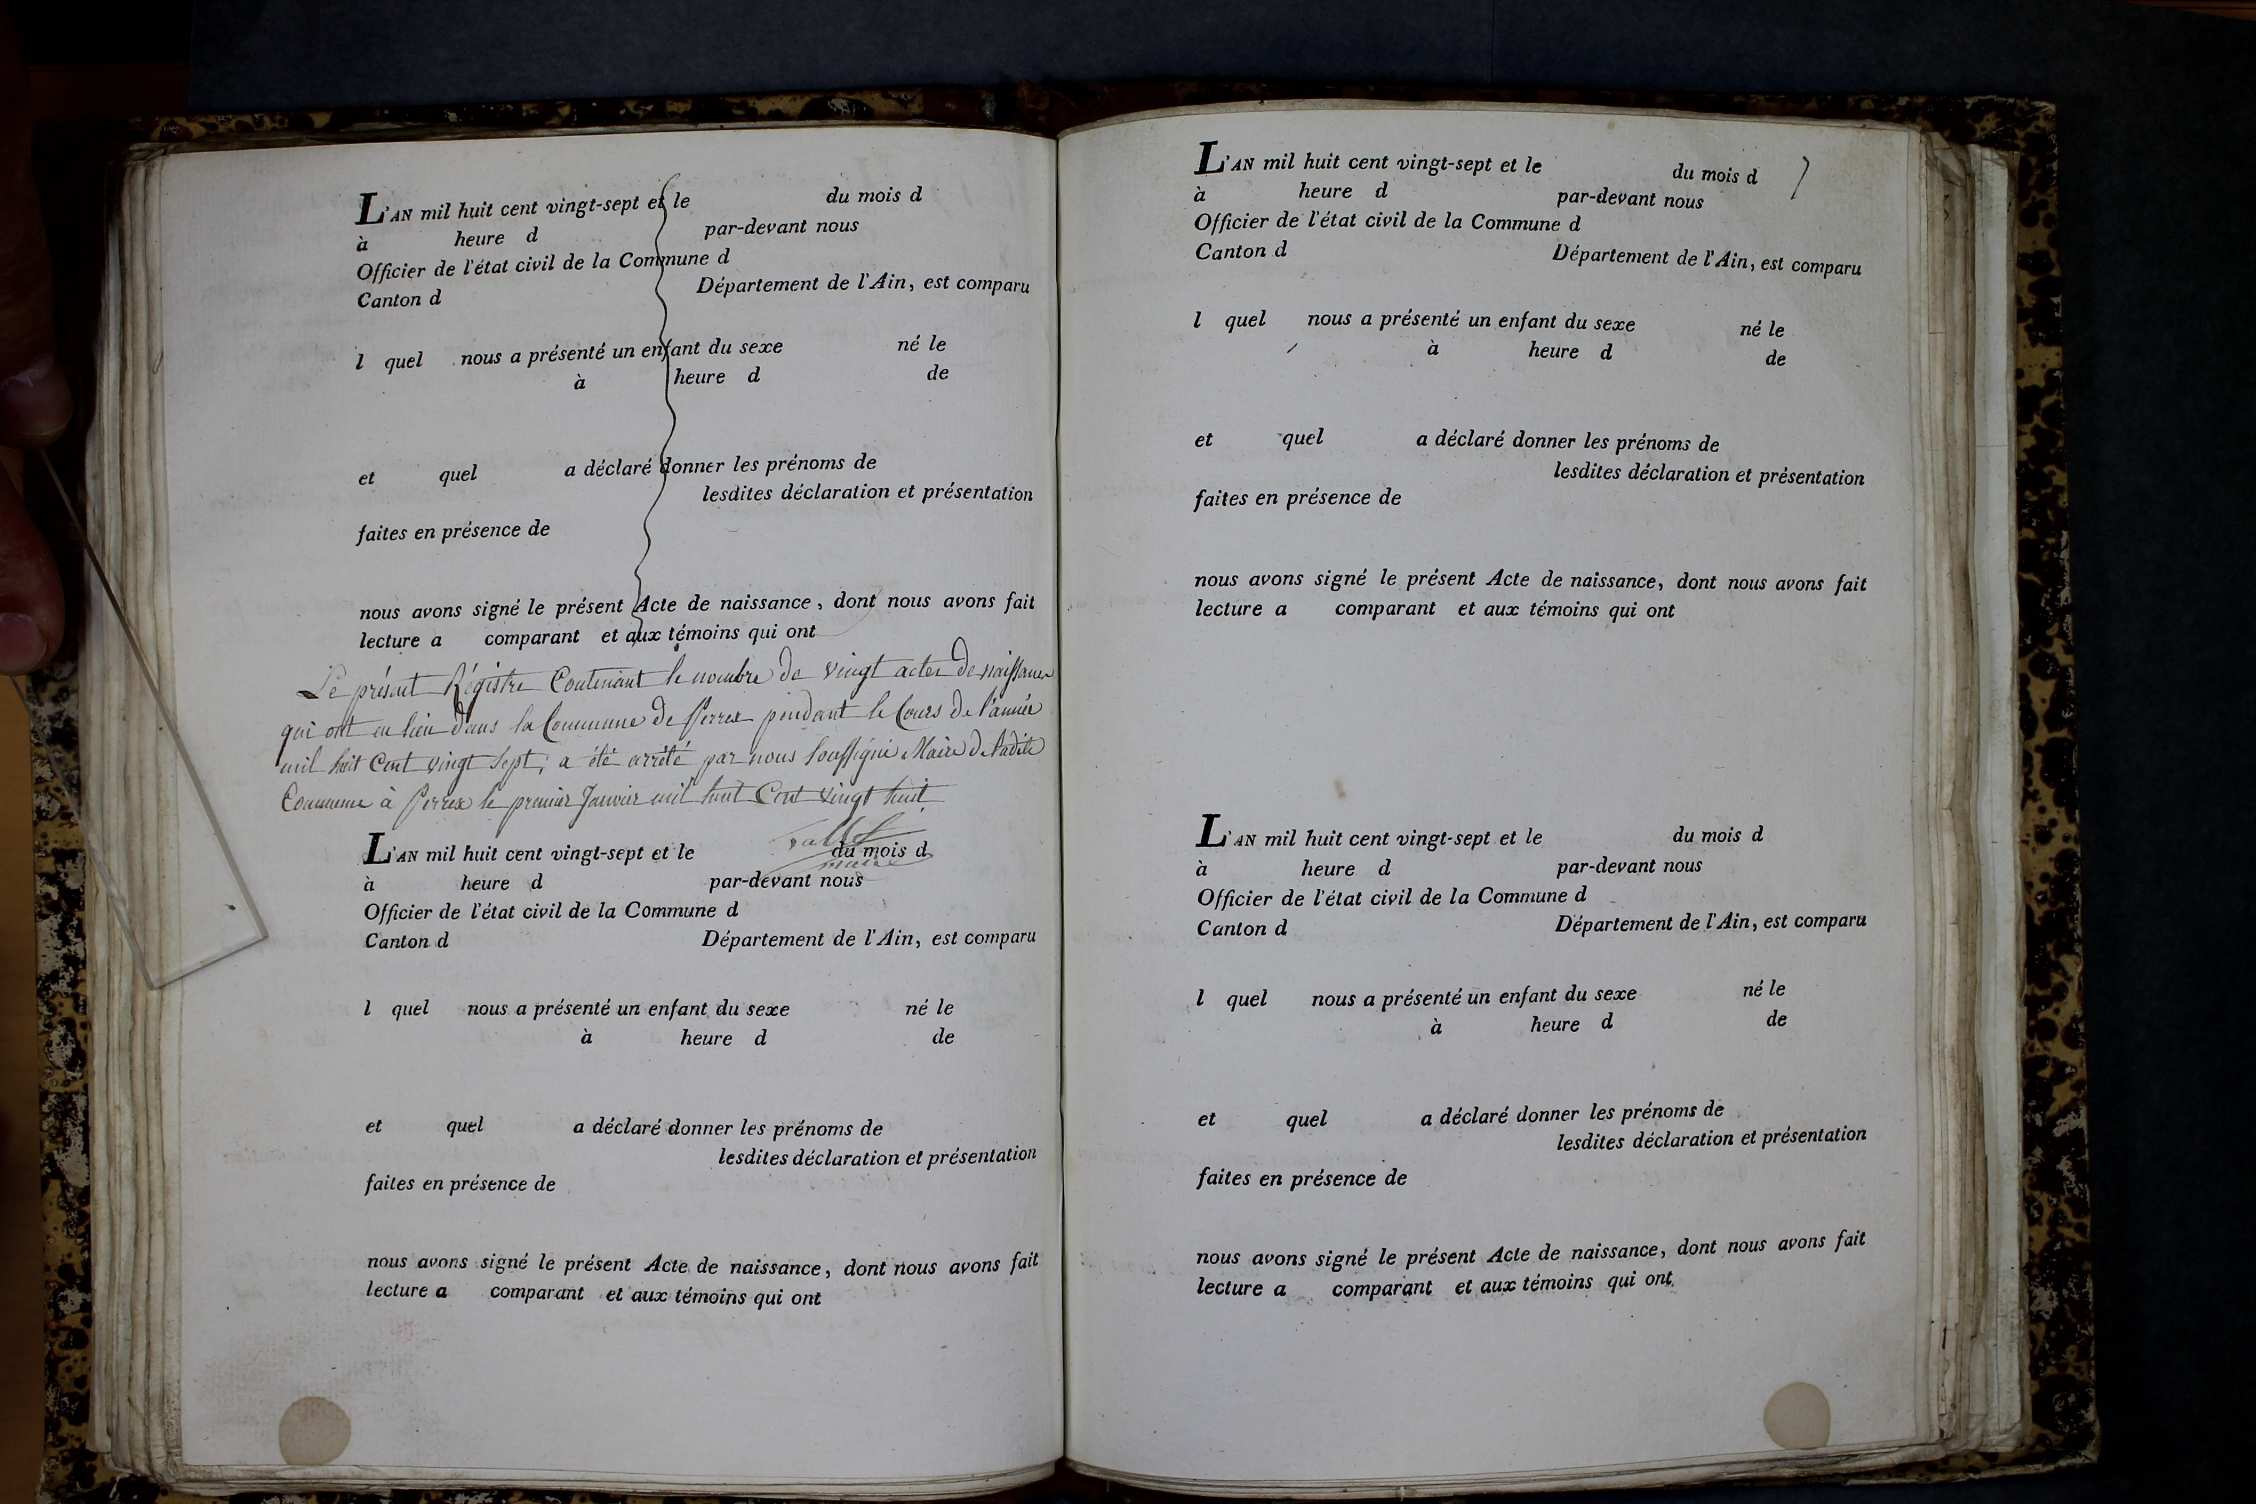 L'AN mil huit cent vingt-sept et le du mois d
à heure d par-devant nous
Officier de l'état civil de la Commune d
Canton d Département de l'Ain, est comparu
l quel nous a présenté un enfant du sexe né le
à heure d de
et quel a déclaré donner les prénoms de
lesdites déclaration et présentation
faites en présence de
nous avons signé le présent Acte de naissance, dont nous avons fait
lecture a comparant et aux témoins qui ont
Le présent Régistre Contenant le nombre de vingt actes de naissance
qui ont eu lieu dans la Commune de Perrex pendant le Cours de l'année
mil huit Cent vingt Sept, a été arrêté par nous Soussigné Maire de ladite
Commune à Perrex le premier Janvier mil huit Cent vingt huit
maire
L'AN mil huit cent vingt-sept et le du mois d
à heure d par-devant nous
Officier de l'état civil de la Commune d
Canton d Département de l'Ain, est comparu
l quel nous a présenté un enfant du sexe né le
à heure d de
et quel a déclaré donner les prénoms de
lesdites déclaration et présentation
faites en présence de
nous avons signé le présent Acte de naissance, dont nous avons fait
lecture a comparant et aux témoins qui ont
7
L'AN mil huit cent vingt-sept et le du mois d
à heure d par-devant nous
Officier de l'état civil de la Commune d
Canton d Département de l'Ain, est comparu
l quel nous a présenté un enfant du sexe né le
à heure d de
et quel a déclaré donner les prénoms de
lesdites déclaration et présentation
faites en présence de
nous avons signé le présent Acte de naissance, dont nous avons fait
lecture a comparant et aux témoins qui ont
L'AN mil huit cent vingt-sept et le du mois d
à heure d par-devant nous
Officier de l'état civil de la Commune d
Canton d Département de l'Ain, est comparu
l quel nous a présenté un enfant du sexe né le
à heure d de
et quel a déclaré donner les prénoms de
lesdites déclaration et présentation
faites en présence de
nous avons signé le présent Acte de naissance, dont nous avons fait
lecture a comparant et aux témoins qui ont